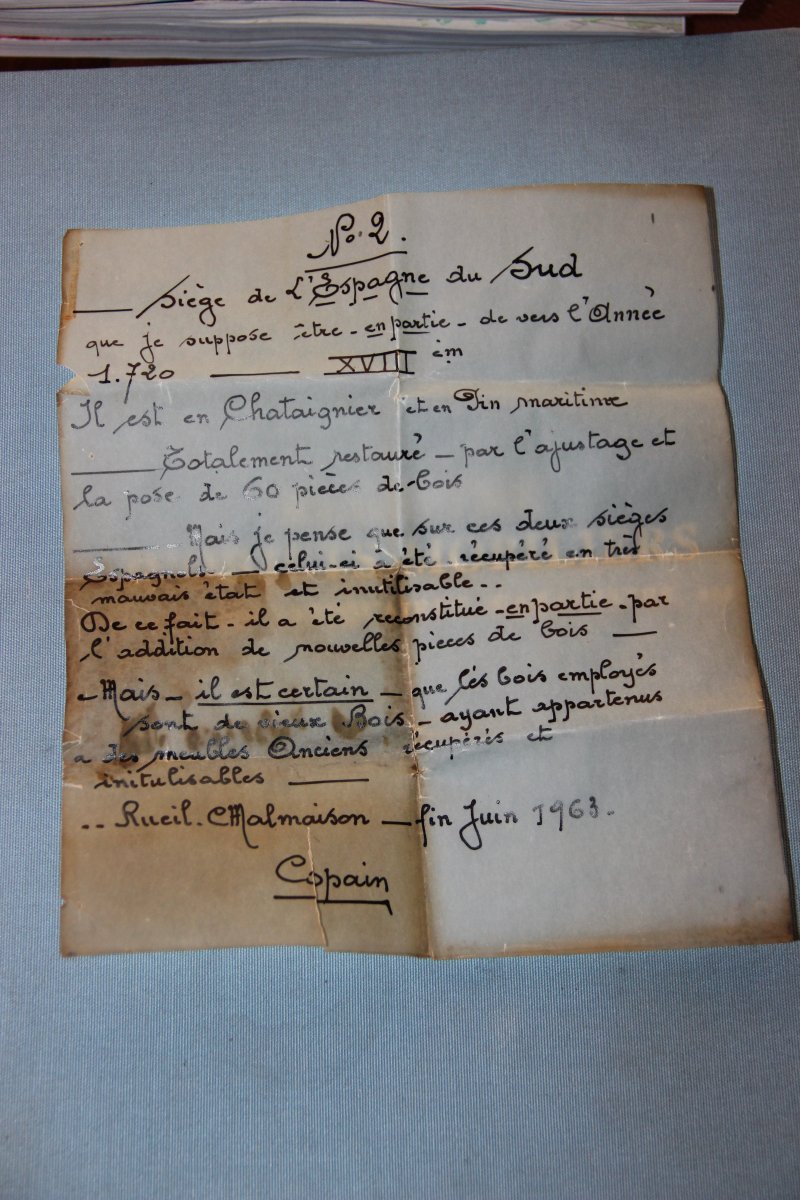 No. 2.
— Siège de L'Espagne du Sud
que je suppose être - en partie - de vers l'Année
1.720 — XVIII èm
Il est en Chataignier et en Pin maritime
— Totalement restauré - par l'ajustage et
la pose de 60 pièces de bois
— Mais je pense que sur ces deux sièges
Espagnols - celui-ci a été récupéré en très
mauvais état et inutilisable..
De ce fait - il a été reconstitué - en partie - par
l'addition de nouvelles pieces de bois —
- Mais - il est certain - que lés bois employés
sont de vieux Bois - ayant appartenus
a des meubles Anciens récupérés et
initulisables —
.. Rueil-Malmaison - fin Juin 1963.
Copain